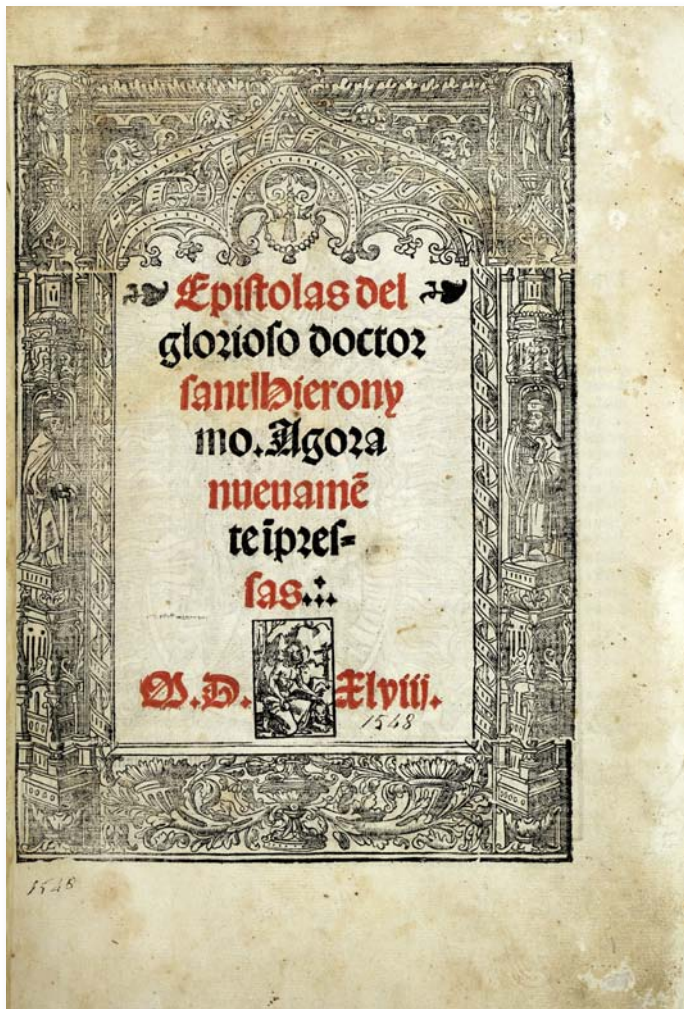 Epistolas del
glorioso doctor
sant Hierony
mo. Agora
nueuamē
te īpres=
sas
M.D. Xlviij.
1548
1548